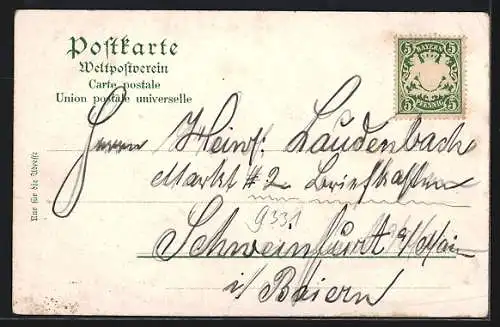 Postkarte
Weltpostverein
Carte postale
Union postale universelle
5 BAYERN 5
5 PFENNIG 5
Herrn Heinr. Laudenbach
Markt # 2 Briefkasten
9331
Schweinfurt a/Main
i/ Baiern
Nur für die Adresse